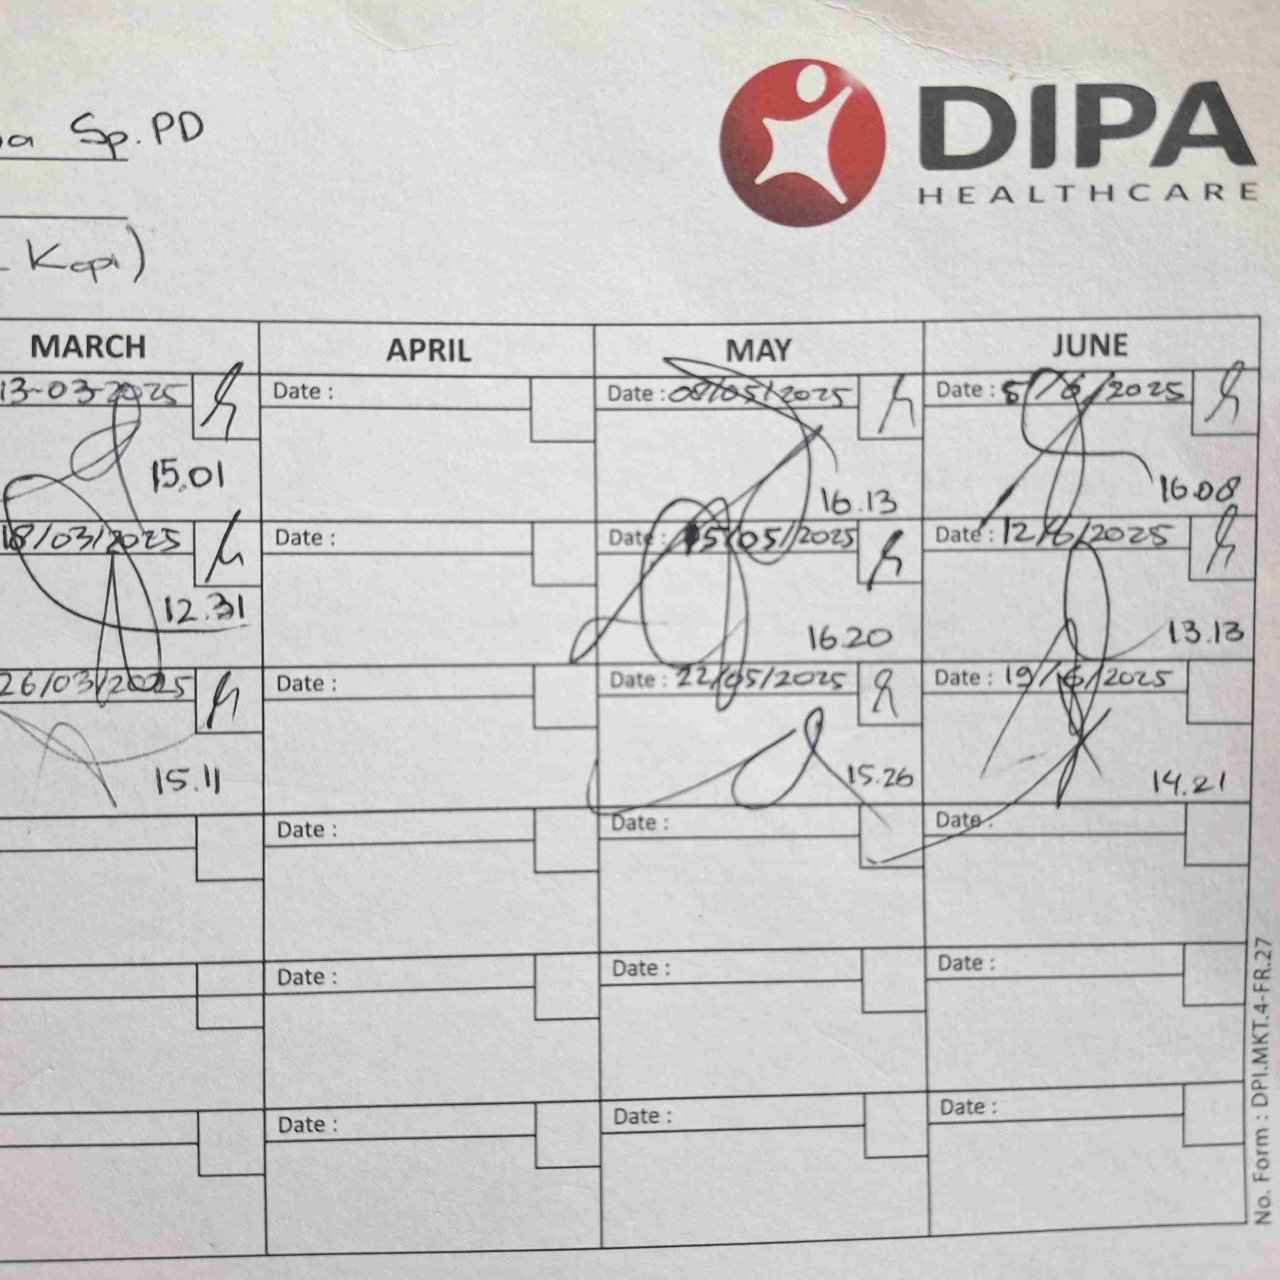 Sp.PD
DIPA
HEALTHCARE
Kopi)
MARCH APRIL MAY JUNE
13-03-2025 Date : Date : 08/05/2025 Date : 5/6/2025
15.01 16.13 16.08
18/03/2025 Date : Date : 15/05/2025 Date : 12/6/2025
12.31 16.20 13.13
26/03/2025 Date : Date : 22/05/2025 Date : 19/6/2025
15.11 15.26 14.21
Date : Date : Date :
Date : Date : Date :
Date : Date : Date :
No. Form : DPI.MKT.4-FR.27